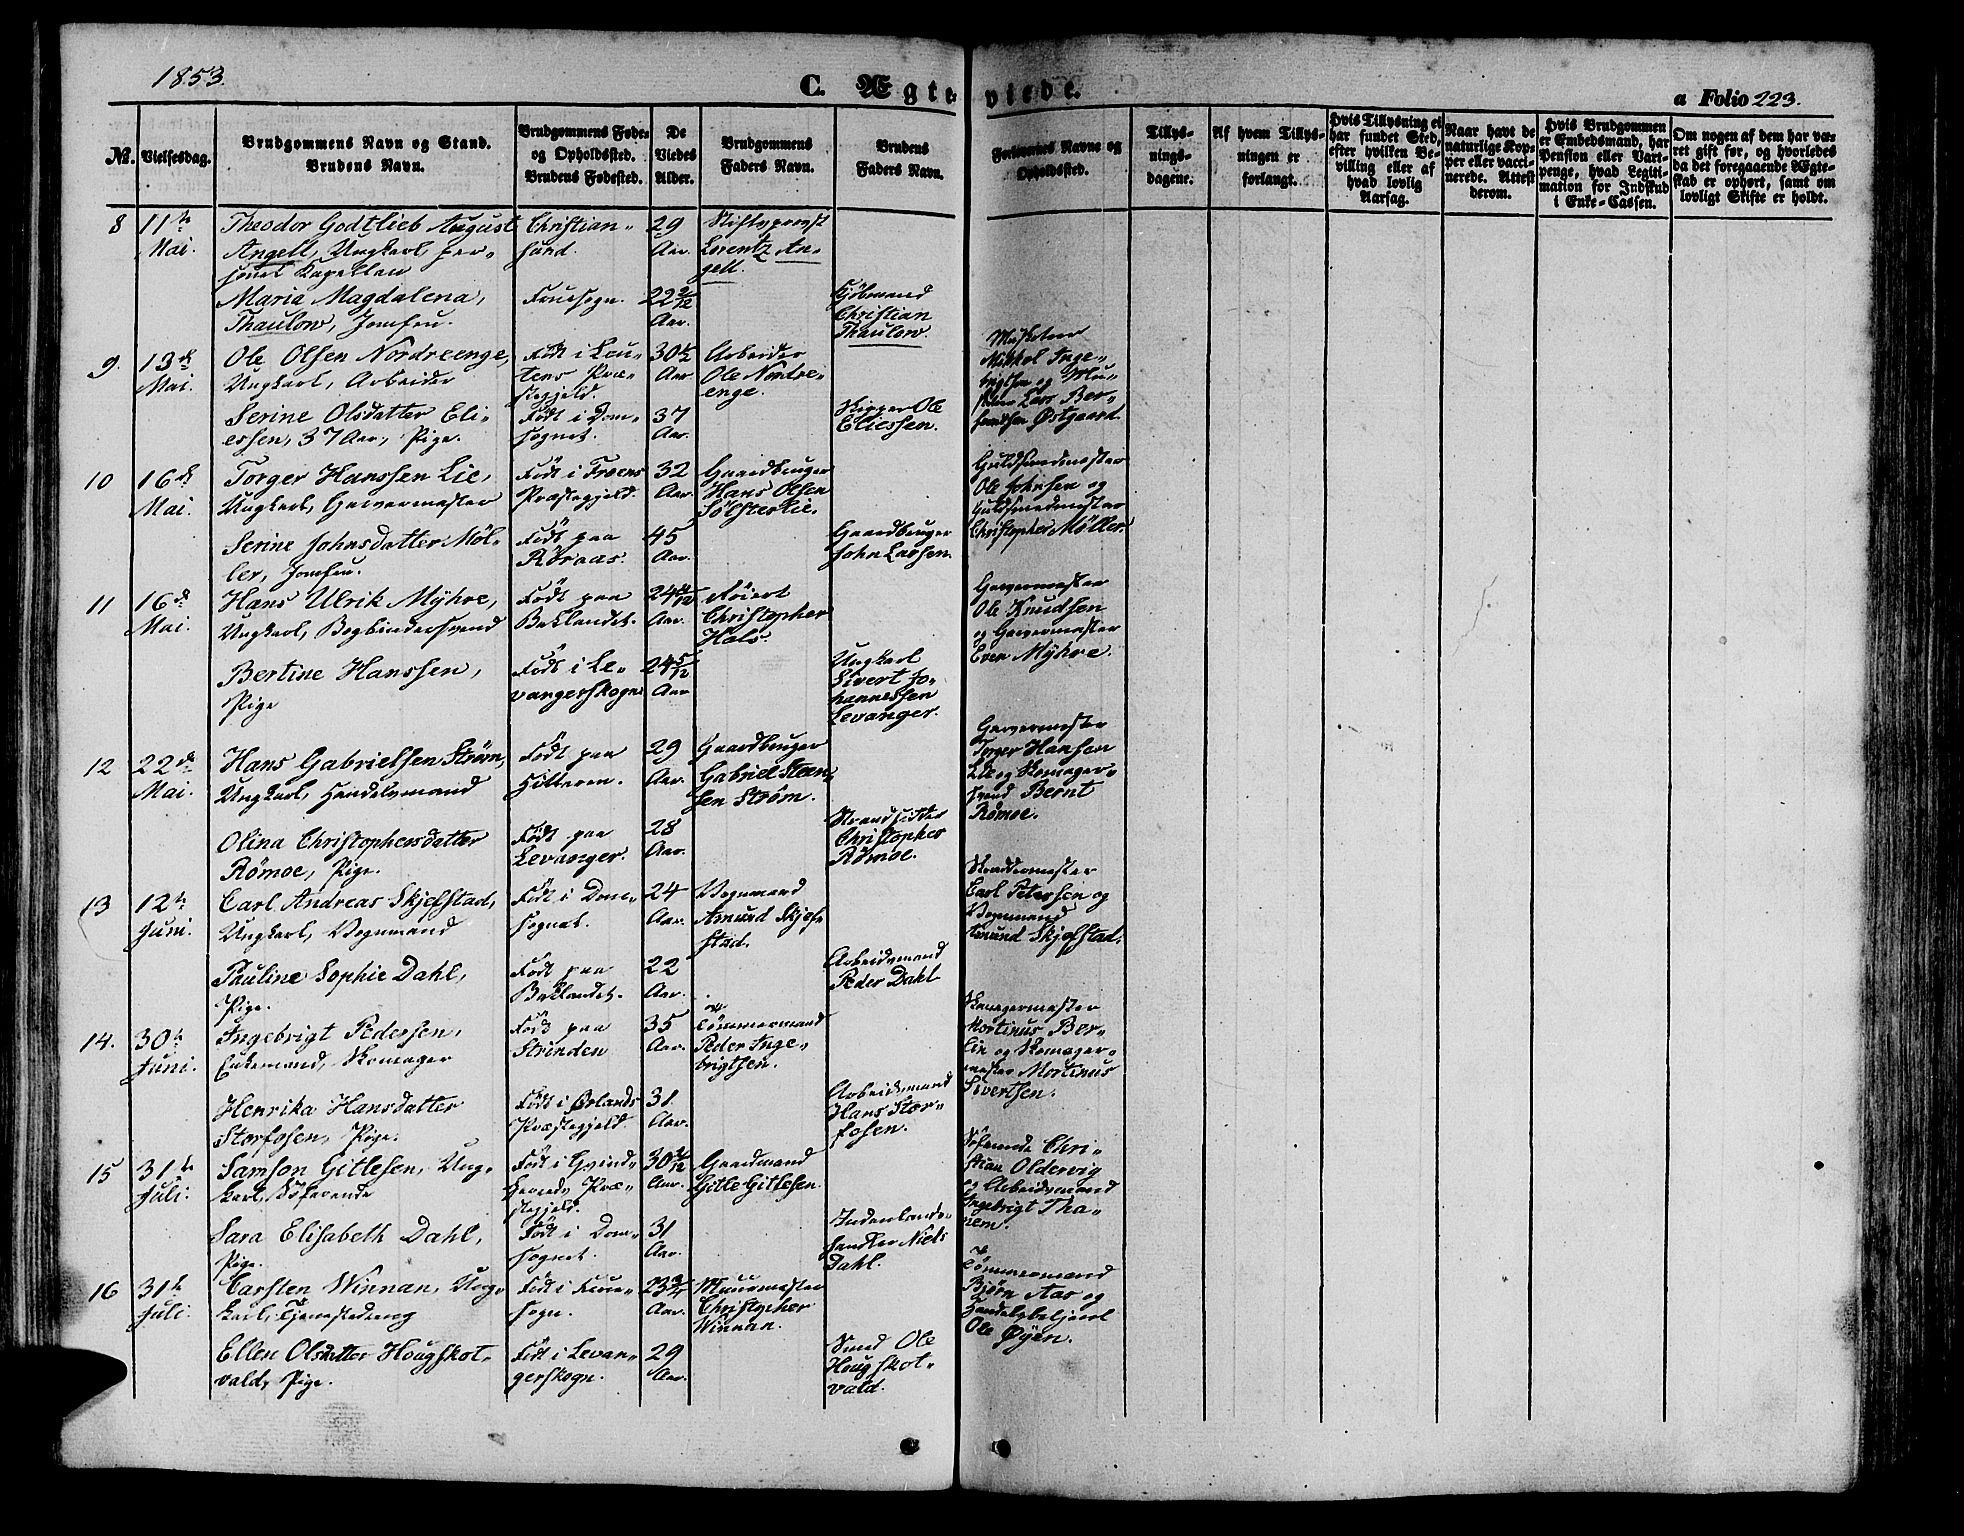 1853.
C. Ægte viede.
a Folio 223.
No.
Vielsesdag.
Brudgommens Navn og Stand.
Brudens Navn.
Brudgommens Føde-
og Opholdssted.
Brudens Fødested.
De
Viedes
Alder.
Brudgommens
Faders Navn.
Brudens
Faders Navn.
Forlovernes Navne og
Opholdssted.
Tillys-
nings-
dagene.
Af hvem Tillys-
ningen er
forlangt.
Hvis Tillysning ei
har fundet Sted,
efter hvilken Be-
villing eller af
hvad lovlig
Aarsag.
Naar havt de
naturlige Kop-
per eller vacci-
nerede. Attest
derom.
Hvis Brudgommen
er Embedsmand, har
Pension eller Vart-
penge, hvad Legiti-
mation for Indskud
i Enke-Cassen.
Om nogen af dem har væ-
ret gift før, og hvorledes
da det foregaaende Ægte-
skab er ophørt, samt om
lovligt Skifte er holdt.
8
11te
Mai.
Theodor Godtlieb August
Angell, Ungkarl, per-
sonel Kapellan
Christian-
sund.
29
Aar.
Stiftsprovst
Lorentz An-
gell.
Maria Magdalena,
Thaulow, Jomfru.
Fruesogn.
22 2/12
Aar.
Kjöbmand
Christian
Thaulow.
9.
13de
Mai.
Ole Olsen Nordreenge,
Ungkarl, Arbeider
Født i Leu-
tens Præ-
stegjeld.
30 1/2
Aar
Arbeider
Ole Nordre-
enge.
Mikkel Inge-
brigtsen og Mu-
Lars Ber-
Østgaard.
Serine Olsdatter Eli-
essen, 37 Aar, Pige.
Født i Dom-
sognet.
37
Aar.
Skipper Ole
Eliessen.
10
16de
Mai.
Torger Hanssen Lie,
Ungkarl, Garvermester
Født i Froens
Præstegjeld.
32
Aar.
Gaardbruger
Hans Olsen
Sølsterlie.
Guldsmedmester
Ole Johnsen og
Guldsmedmester
Christopher Møller.
Serine Johnsdatter Møl-
ler, Jomfru.
Født paa
Röraas.
45
Aar.
Gaardbruger
John Larsen.
11
16de
Mai.
Hans Ulrik Myhre,
Ungkarl, Bogbindersvend
Født paa
Baklandet.
Aar.
Christopher
Hals.
Garvermester
Ole Knudsen
og Garvermester
Even Myhre.
Bertine Hanssen,
Pige
Født i Le-
vangerskogn
24 5/12
Aar
Ungkarl
Sivert Jo-
hannessen
Levanger.
12
22de
Mai.
Hans Gabrielsen Strøm,
Ungkarl, Handelsmand
Født paa
Hitteren.
29
Aar.
Gaardbruger
Gabriel Steen-
sen Strøm.
Garvermester
Torger Hansen
Lie og Skomager-
svend Bernt
Rømoe.
Olina Christophersdatter
Rømoe, Pige.
Født paa
Levanger.
28
Aar.
Strandsidder
Christopher
Rømoe.
13
12te
Juni.
Carl Andreas Skjefstad,
Ungkarl, Vognmand
Født i Dom-
sognet.
24
Aar.
Vognmand
Amund Skjef-
stad.
Skreddermester
Carl Petersen og
Vognmand
Amund Skjefstad.
Pauline Sophie Dahl,
Pige.
Født paa
Baklandet.
22
Aar.
Arbeidsmand
Peder Dahl
14.
30te
Juni.
Ingebrigt Pedersen,
Enkemand, Skomager
Født paa
Strinden
35
Aar.
Tömmermand
Peder Inge-
brigtsen.
Skomagermester
Mortinus Ber-
lin og Skomager-
mester Mortinus
Sivertsen.
Henrika Hansdatter
Storfosen, Pige.
Født i Ørlands
Præstegjeld
31.
Aar.
Arbeidsmand
Hans Stor-
fosen.
15
31te
Juli.
Samson Gitlesen, Ung-
karl, Söfarende
Født i Qvind-
herreds Præ-
stegjeld.
30 2/12
Aar.
Gaardmand
Gitle Gitlesen.
Söfarende Chri-
stian Oldervig
og Arbeidsmand
Ingebrigt Tha-
nem.
Sara Elisabeth Dahl,
Pige.
Født i Dom-
sognet.
31
Aar.
Indenlands-
handler Niels
Dahl.
16
31te
Juli.
Carsten Winnan, Ung-
karl, Tjenestedreng
Født i Frue-
sogn.
23 3/4
Aar.
Muurmester
Christopher
Winnan.
Tömmermand
Bjørn Aas og
Handelsbetjent
Ole Øyen.
Ellen Olsdatter Hougskot-
vald, Pige.
Født i Levan-
gerskogn.
29
Aar.
Ole
Hougskot-
vald.